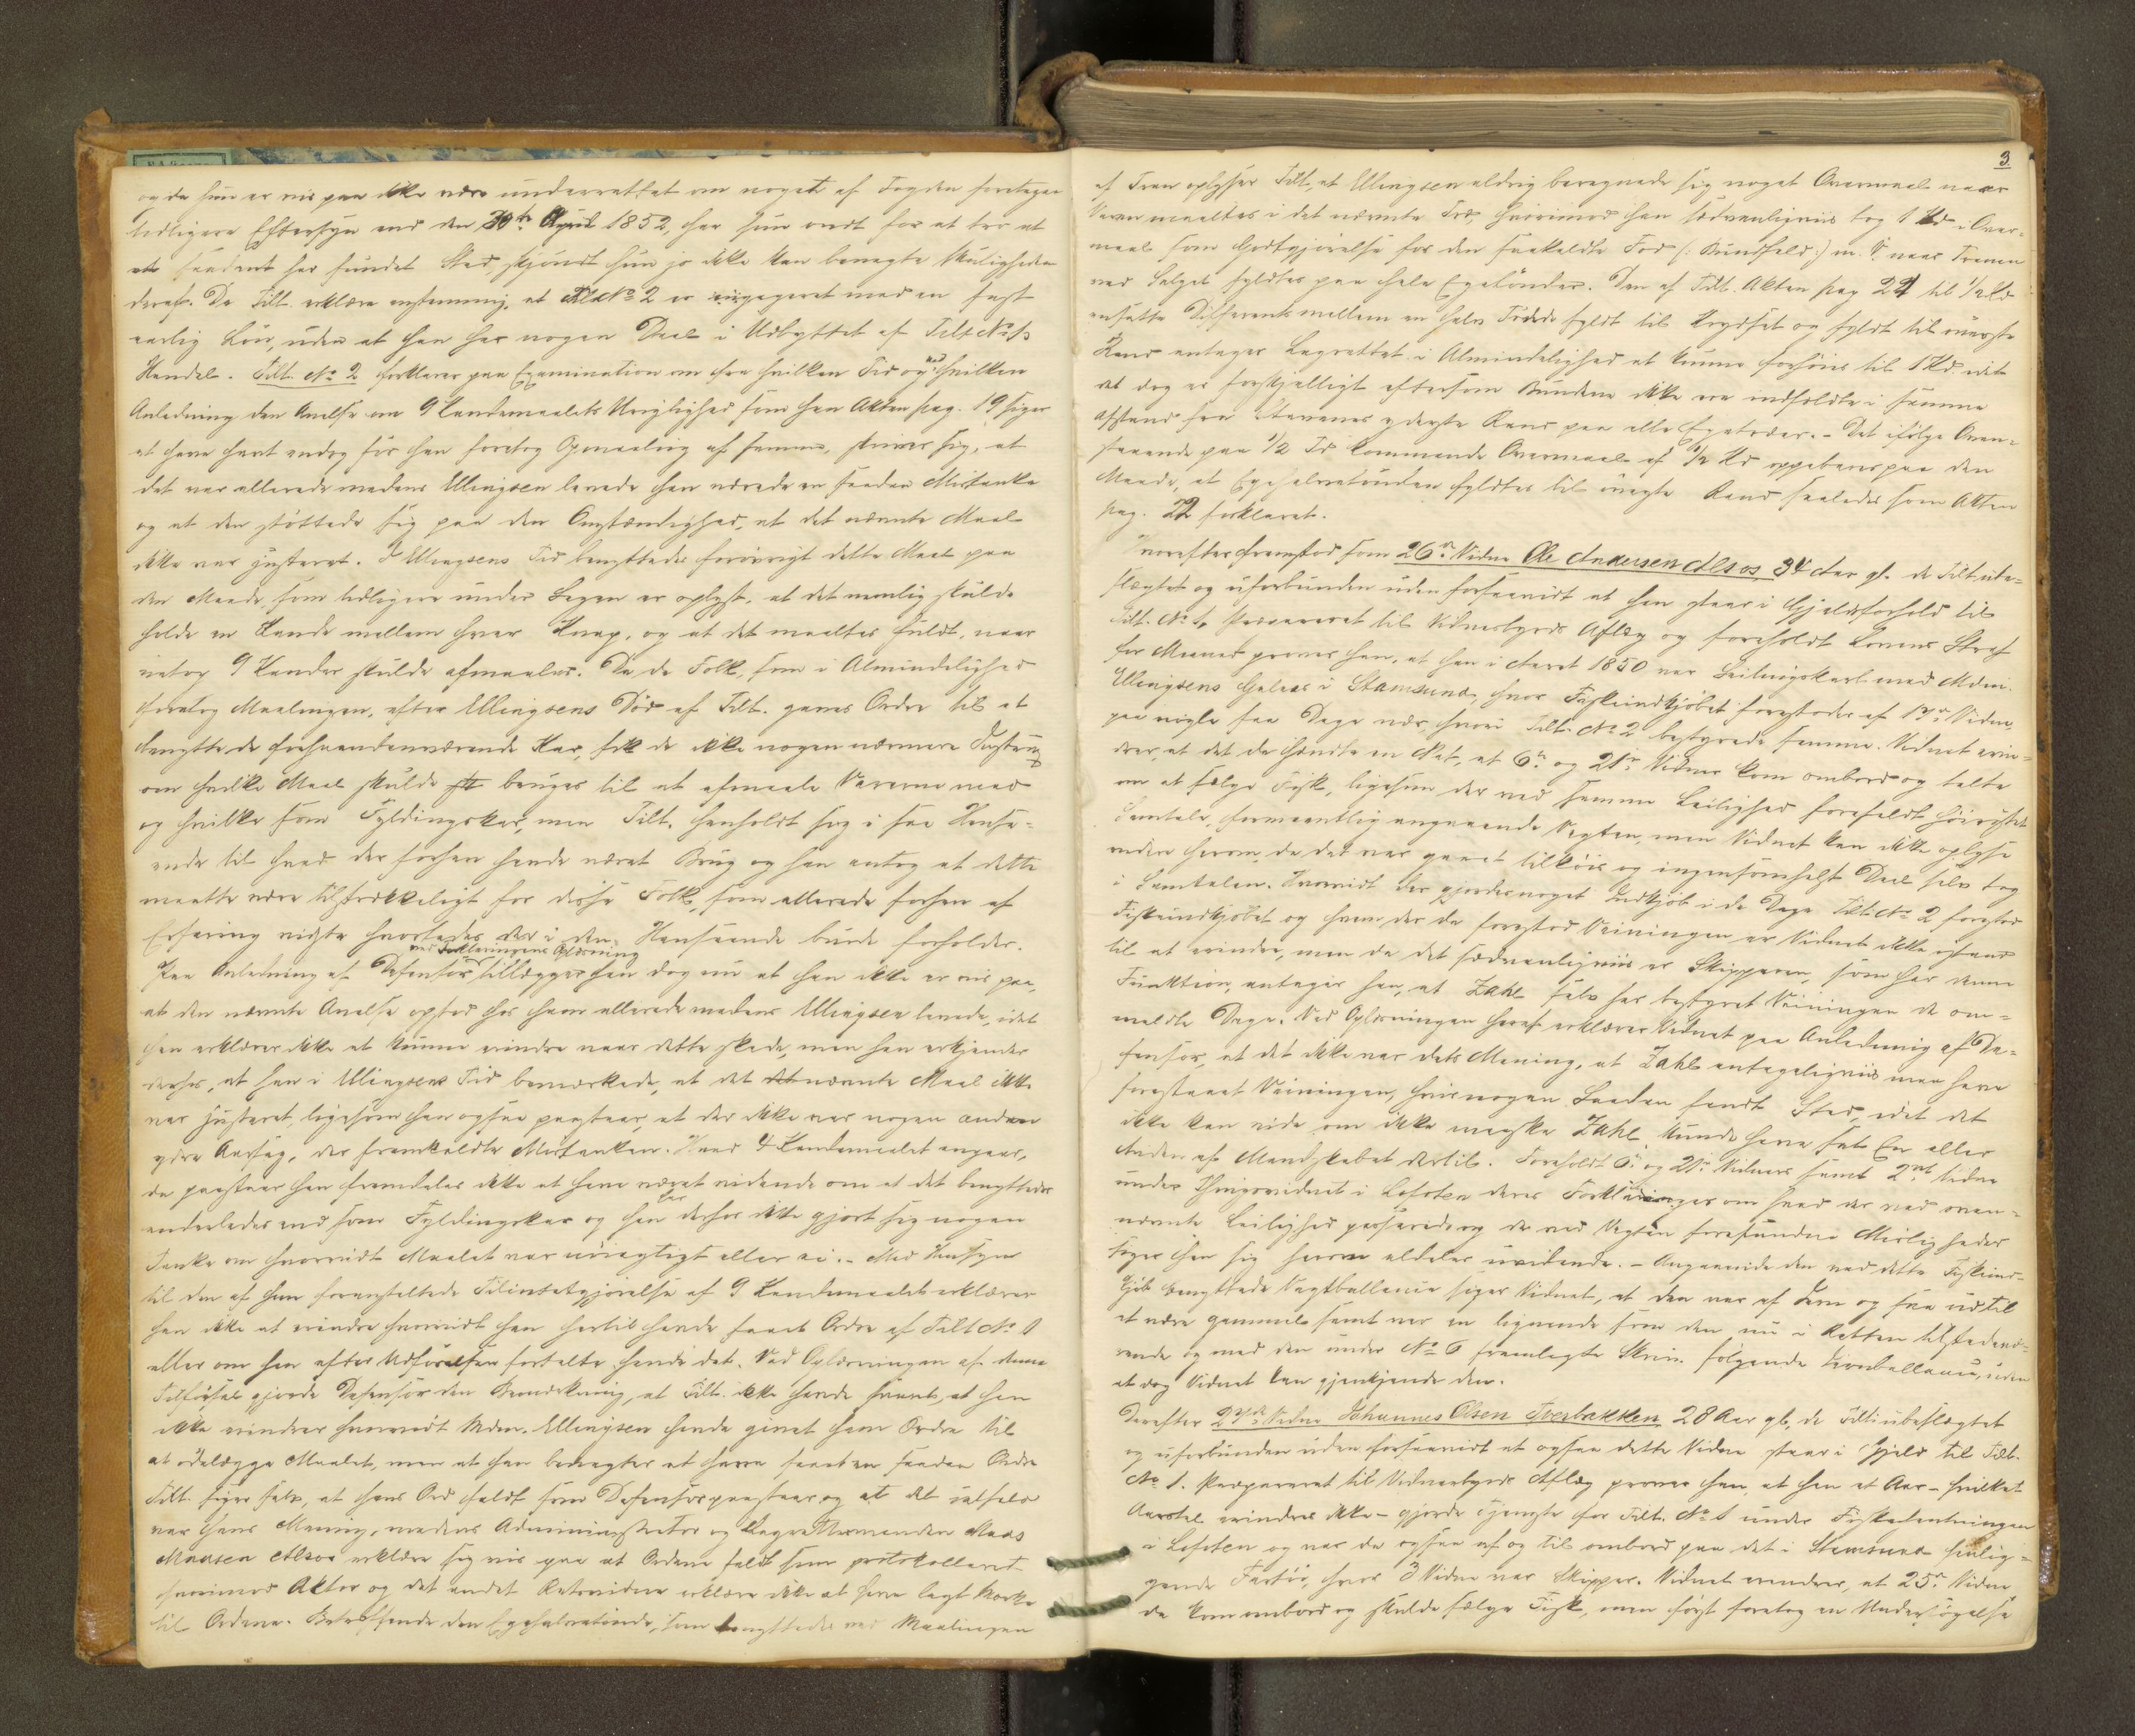 og da hun er vis paa ikke være underrettet om noget af Fogden foretagen
tidligere Eftersyn end den 30te April 1852, har hun ondt for at troe at
et saadant har fundet Sted, skjøndt hun jo ikke kan benægte Muligheden
deraf. De Tilt. erklære enstemmig, at Tilt No 2 er engageret med en fast
aarlig Løn, uden at han har nogen Deel i Udbyttet af Tilt No 1s
Handel. Tilt. No 2 forklarer paa Examination om fra hvilken Tid og ved hvilken
Anledning den Anelse om 9 Kandemaalets Urigtighed som han Akten pag. 19 siger
at have havt endog før han foretog Opmaaling af samme, skriver sig, at
det var allerede medens Ellingsen levede han nærede en saadan Mistanke
og at den støttede sig paa den Omstændighed, at det nævnte Maal
ikke var justeret. I Ellingsens Tid benyttedes forøvrigt dette Maal paa
den Maade, som tidligere under Sagen er oplyst, at det nemlig skulde
holde en Kande mellem hver Knap, og at det maaltes fuldt, naar
netop 9 Kander skulde afmaales. Da de Folk, som i Almindelighed
foretog Maalingen, efter Ellingsens Død af Tilt. gaves Ordre til at
benytte de forhaandenværende Kar, fik de ikke nogen nærmere
om hvilke Maal skulde bruges til at afmaale Varerne med
og hvilke som Fyldingskar, men Tilt. henholdt sig i saa Hense=
ende til hvad der forhen havde været Brug og han antog at dette
maatte være tilstrækkeligt for disse Folk, som allerede forhen af
Erfaring vidste hvorledes der i den Henseende burde forholdes.
ved Forklaringens Oplæsning
Paa Anledning af Defensor tillægger han dog nu at han ikke er vis paa,
at den nævnte Anelse opstod hos ham allerede medens Ellingsen levede, idet
han erklærer ikke at kunne erindre naar dette skede, men han erkjender
derhos, at han i Ellingsens Tid bemærkede, at det nævnte Maal ikke
var justeret, ligesom han ogsaa paastaar, at der ikke var nogen anden
ydre Aarsag, der fremkaldte Mistanken. Hvad 4 Kandemaalet angaar,
da paastaar han fremdeles ikke at have været vidende om at det benyttedes
anderledes end som Fyldingskar og han har derfor ikke gjort sig nogen
Tanke om hvorvidt Maalet var nøiagtigt eller ei. - Med Hensyn
til den af ham foranstaltede Tilintetgjørelse af 9 Kandemaalet erklærer
han ikke at erindre hvorvidt han hertil havde faaet Ordre af Tilt No 1
eller om han efter Udførelsen fortalte hende det. Ved Oplæsningen af denne
Tilførsel gjorde Defensor den Bemærkning, at Tilt. ikke havde svaret, at han
ikke erindrer hvorvidt Mdm. Ellingsen havde givet ham Ordre til
at ødelægge Maalet, men at han benægter at have faaet en saadan Ordre
Tilt. siger selv, at hans Ord faldt som Defensor paastaar og at det ialfald
var hans Mening, medens Administrator og Lagrettemanden Mads
Madsen Alsos erklære sig vis paa at Ordene faldt som protokolleret
hvorimod Aktor og det andet Retsvidne erklære ikke at have lagt Mærke
til Ordene. Betræffende den Egehalvetønde, som benyttedes ved Maalingen
3
af Tran oplyser Tilt, at Ellingsen aldrig beregnede sig noget Overmaal naar
Varen maaltes i det nævnte Træ, hvorimod han sædvanligviis tog 1 Kd i Over=
maal som Godtgjørelse for den saakaldte Fod (: Bundfald :) m. V. naar Tranen
ved Salget fyldtes paa hele Egetønder. Den af Tilt. Akten pag 24 til 1/2 Kd
ansatte Differents mellem en halv Tønde fyldt til Krydset og fyldt til øverste
Rand antager Lagrettet i Almindelighed at kunne forhøies til 1 Kd. idet
det dog er forskjelligt eftersom Bundene ikke ere indfældte i samme
Afstand fra Stavenes yderste Rand paa alle Egetøder. - Det ifølge Oven=
staaende paa 1/2 Td kommende Overmaal af 1/2 Kd oppebæres paa den
Maade, at Egehalvetønden fyldtes til øverste Rand saaledes som Akten
pag. 22 forklaret.
Hvorefter fremstod som 26de Vidne Ole Andersen Alsos, 34 Aar gl. de Tilt ube=
slægtet og uforbunden uden forsaavidt at han staar i Gjeldsforhold til
Tilt. No 1. Præpareret til Vidnesbyrds Aflæg og foreholdt Lovens Straf
for Meened prover han, at han i Aaret 1850 var Leilingskarl med Mdm.
Ellingsens Galeas i Stamsund, hvor Fiskeindkjøbet forestodes af 17de Vidne,
paa nogle faa Dage nær, hvori Tilt. No 2 bestyrede samme. Vidnet erin=
drer, at det da hændte en Nat, at 6te og 21de Vidner kom ombord og talte
om at sælge Fisk, ligesom der ved samme Leilighed forefaldt høirøstet
Samtale, formeentlig angaaende Vægten, men Vidnet kan ikke oplyse
videre herom, da det var gaaet tilkøis og ingensomhelst Deel selv tog
i Samtalen. Hvorvidt der gjordes noget Indkjøb i de Dage Tilt No 2 forestod
Fiskeindkjøbet og hvem der da forestod Veiningen er Vidnet ikke istand
til at erindre, men da det sædvanligviis er Skipperen, som har denne
Funktion, antager han, at Zahl selv har bestyret Veiningen de om=
meldte Dage. Ved Oplæsningen heraf erklærer Vidnet paa Anledning af De=
fensor, at det ikke var dets Mening, at Zahl antageligviis maa have
forestaaet Veiningen, hvis nogen saadan fandt Sted, idet det
ikke kan vide om ikke maaske Zahl kunde have sat En eller
Anden af Mandskabet dertil. Foreholdt 6te og 21de Vidners samt 2det Vidne
under Thingsvidnet i Lofoten deres Forklaringer om hvad der ved oven=
nævnte Leilighed passerede og de ved Vægten forefundne Misligheder
siger han sig herom aldeles uvidende. - Angaaende den ved dette Fiskeind=
kjøb benyttede Vægtballance siger Vidnet, at den var af Jern og saa ud til
at være gammel samt var en lignende som den nu i Retten tilstedevæ=
rende og med den under No 6 fremlagte Skriv. følgende Jernballance, uden
at dog Vidnet kan gjenkjende den.
Derefter 27de Vidne Johannes Olsen Tverbakken 28 Aar gl, de Tilt ubeslægtet
og uforbunden uden forsaavidt at ogsaa dette Vidne staar i Gjeld til Tilt.
No 1. Præpareret til Vidnesbyrds Aflæg prover han, at han et Aar - hvilket
Aarstal erindres ikke - gjorde Tjeneste for Tilt. No 1 under Fiskehentningen
i Lofoten og var da ogsaa af og til ombord paa det i Stamsund henlig=
gende Fartøi, hvor 3 Vidne var Skipper. Vidnet erindrer, at 25de Vidne
da kom ombord og skulde sælge Fisk, men først foretog en Undersøgelse